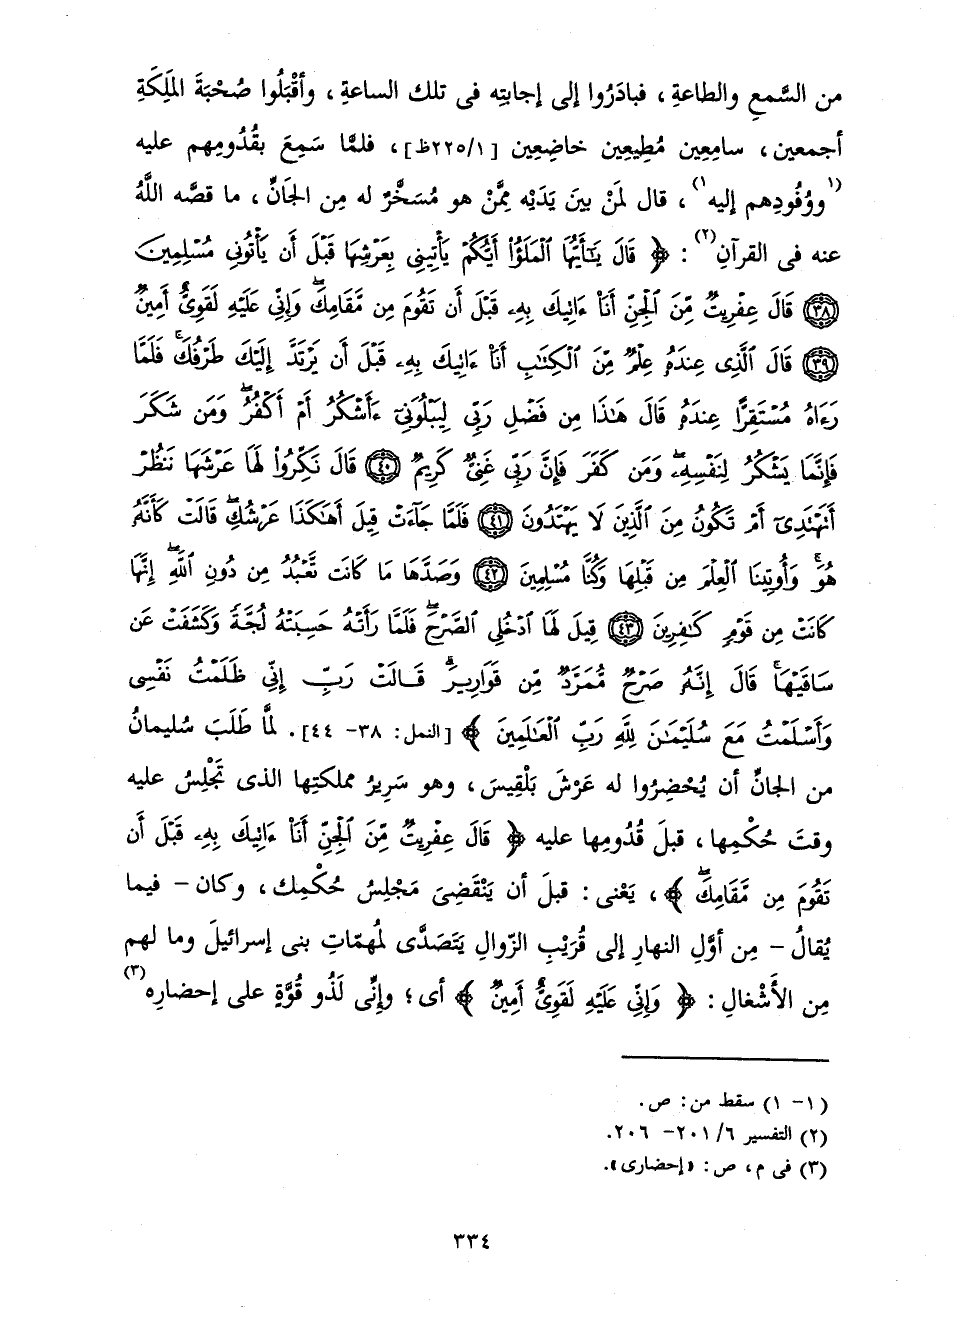 من السَّمعِ والطاعةِ ، فبادَرُوا إلى إجابتِه فى تلك الساعةِ ، وأقْبَلُوا صُحْبَةَ المَلِكَةِ
أجمعين ، سامِعِين مُطِيعِين خاضِعِين [ ٢٢٥/١ظ] ، فلمَّا سَمِعَ بقُدُومِهم عليه
(١ووُفُودِهم إليه١) ، قال لمَنْ بينَ يَدَيْه مِمَّنْ هو مُسَخَّرٌ له مِن الجَانِّ ، ما قصَّه اللَّهُ
عنه فى القرآنِ(٢) : ﴿ قَالَ يَٰٓأَيُّهَا ٱلْمَلَؤُا۟ أَيُّكُمْ يَأْتِينِى بِعَرْشِهَا قَبْلَ أَن يَأْتُونِى مُسْلِمِينَ
(٣٨) قَالَ عِفْرِيتٌ مِّنَ ٱلْجِنِّ أَنَا۠ ءَاتِيكَ بِهِۦ قَبْلَ أَن تَقُومَ مِن مَّقَامِكَۖ وَإِنِّى عَلَيْهِ لَقَوِىٌّ أَمِينٌ
(٣٩) قَالَ ٱلَّذِى عِندَهُۥ عِلْمٌ مِّنَ ٱلْكِتَٰبِ أَنَا۠ ءَاتِيكَ بِهِۦ قَبْلَ أَن يَرْتَدَّ إِلَيْكَ طَرْفُكَۚ فَلَمَّا
رَءَاهُ مُسْتَقِرًّا عِندَهُۥ قَالَ هَٰذَا مِن فَضْلِ رَبِّى لِيَبْلُوَنِىٓ ءَأَشْكُرُ أَمْ أَكْفُرُۖ وَمَن شَكَرَ
فَإِنَّمَا يَشْكُرُ لِنَفْسِهِۦۖ وَمَن كَفَرَ فَإِنَّ رَبِّى غَنِىٌّ كَرِيمٌ (٤٠) قَالَ نَكِّرُوا۟ لَهَا عَرْشَهَا نَنظُرْ
أَتَهْتَدِىٓ أَمْ تَكُونُ مِنَ ٱلَّذِينَ لَا يَهْتَدُونَ (٤١) فَلَمَّا جَآءَتْ قِيلَ أَهَٰكَذَا عَرْشُكِۖ قَالَتْ كَأَنَّهُۥ
هُوَۚ وَأُوتِينَا ٱلْعِلْمَ مِن قَبْلِهَا وَكُنَّا مُسْلِمِينَ (٤٢) وَصَدَّهَا مَا كَانَت تَّعْبُدُ مِن دُونِ ٱللَّهِۖ إِنَّهَا
كَانَتْ مِن قَوْمٍ كَٰفِرِينَ (٤٣) قِيلَ لَهَا ٱدْخُلِى ٱلصَّرْحَۖ فَلَمَّا رَأَتْهُ حَسِبَتْهُ لُجَّةً وَكَشَفَتْ عَن
سَاقَيْهَاۚ قَالَ إِنَّهُۥ صَرْحٌ مُّمَرَّدٌ مِّن قَوَارِيرَۗ قَالَتْ رَبِّ إِنِّى ظَلَمْتُ نَفْسِى
وَأَسْلَمْتُ مَعَ سُلَيْمَٰنَ لِلَّهِ رَبِّ ٱلْعَٰلَمِينَ ﴾ [النمل: ٣٨- ٤٤] . لمَّا طَلَبَ سُليمانُ
من الجانِّ أن يُحْضِرُوا له عَرْشَ بَلْقِيسَ ، وهو سَرِيرُ مملكتِها الذى تَجْلِسُ عليه
وقتَ حُكْمِها ، قبلَ قُدُومِها عليه ﴿ قَالَ عِفْرِيتٌ مِّنَ ٱلْجِنِّ أَنَا۠ ءَاتِيكَ بِهِۦ قَبْلَ أَن
تَقُومَ مِن مَّقَامِكَۖ ﴾ ، يَعْنى : قبلَ أن يَنْقَضِىَ مَجْلِسُ حُكْمِك ، وكان - فيما
يُقالُ - مِن أوَّلِ النهارِ إلى قُرَيْبِ الزّوالِ يَتَصَدَّى لمُهمّاتِ بنى إسرائيلَ وما لهم
مِن الأشْغالِ : ﴿ وَإِنِّى عَلَيْهِ لَقَوِىٌّ أَمِينٌ ﴾ أى ؛ وإنِّى لَذُو قُوَّةٍ على إحضارِه(٣)
(١- ١) سقط من: ص.
(٢) التفسير ٦/ ٢٠١- ٢٠٦.
(٣) فى م، ص: «إحضارى».
٣٣٤